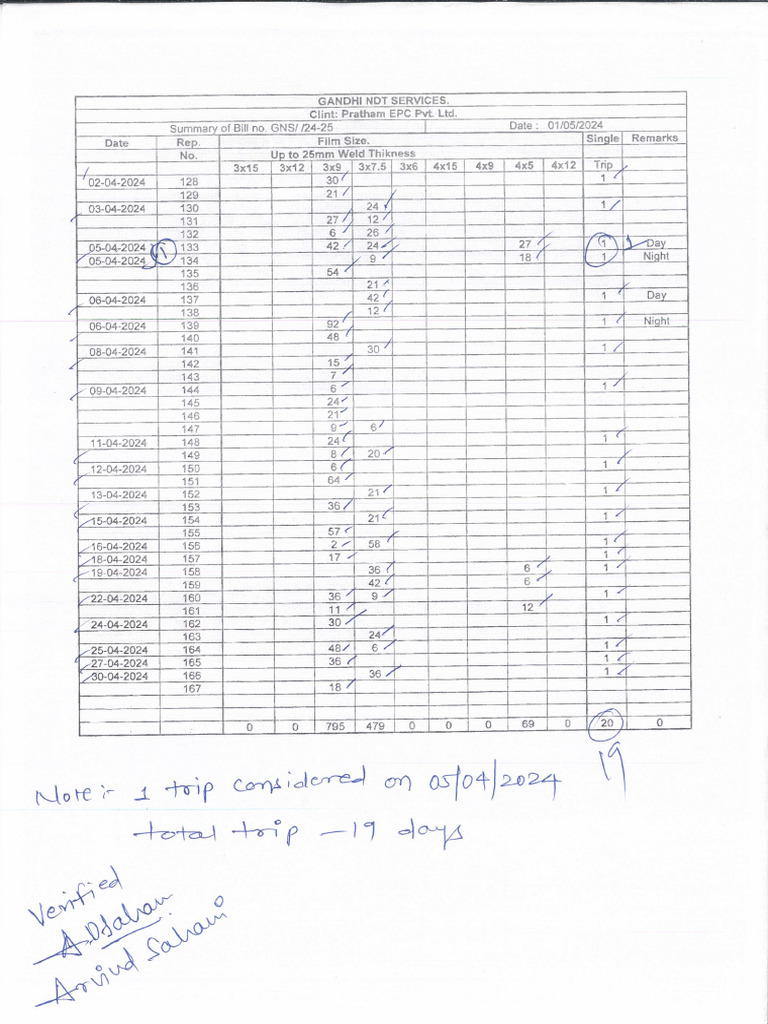 GANDHI NDT SERVICES.
Clint: Pratham EPC Pvt. Ltd.
Summary of Bill no. GNS/ /24-25 Date : 01/05/2024
Date Rep. No. Film Size. Single Trip Remarks
Up to 25mm Weld Thikness
3x15 3x12 3x9 3x7.5 3x6 4x15 4x9 4x5 4x12
02-04-2024 128 30 1
129 21
03-04-2024 130 24 1
131 27 12
132 6 26
05-04-2024 133 42 24 27 1 1 Day
05-04-2024 1 134 9 18 1 Night
135 54
136 21
06-04-2024 137 42 1 Day
138 12
06-04-2024 139 92 1 Night
140 48
08-04-2024 141 30 1
142 15
143 7
09-04-2024 144 6 1
145 24
146 21
147 9 6
11-04-2024 148 24 1
149 8 20
12-04-2024 150 6 1
151 64
13-04-2024 152 21 1
153 36
15-04-2024 154 21 1
155 57
16-04-2024 156 2 58 1
18-04-2024 157 17 1
19-04-2024 158 36 6 1
159 42 6
22-04-2024 160 36 9 1
161 11 12
24-04-2024 162 30 1
163 24
25-04-2024 164 48 6 1
27-04-2024 165 36 1
30-04-2024 166 36 1
167 18
0 0 795 479 0 0 0 69 0 20 0
19
Note :- 1 trip considered on 05/04/2024
total trip - 19 days
Verified
A.D.Sahani
Arvind Sahani